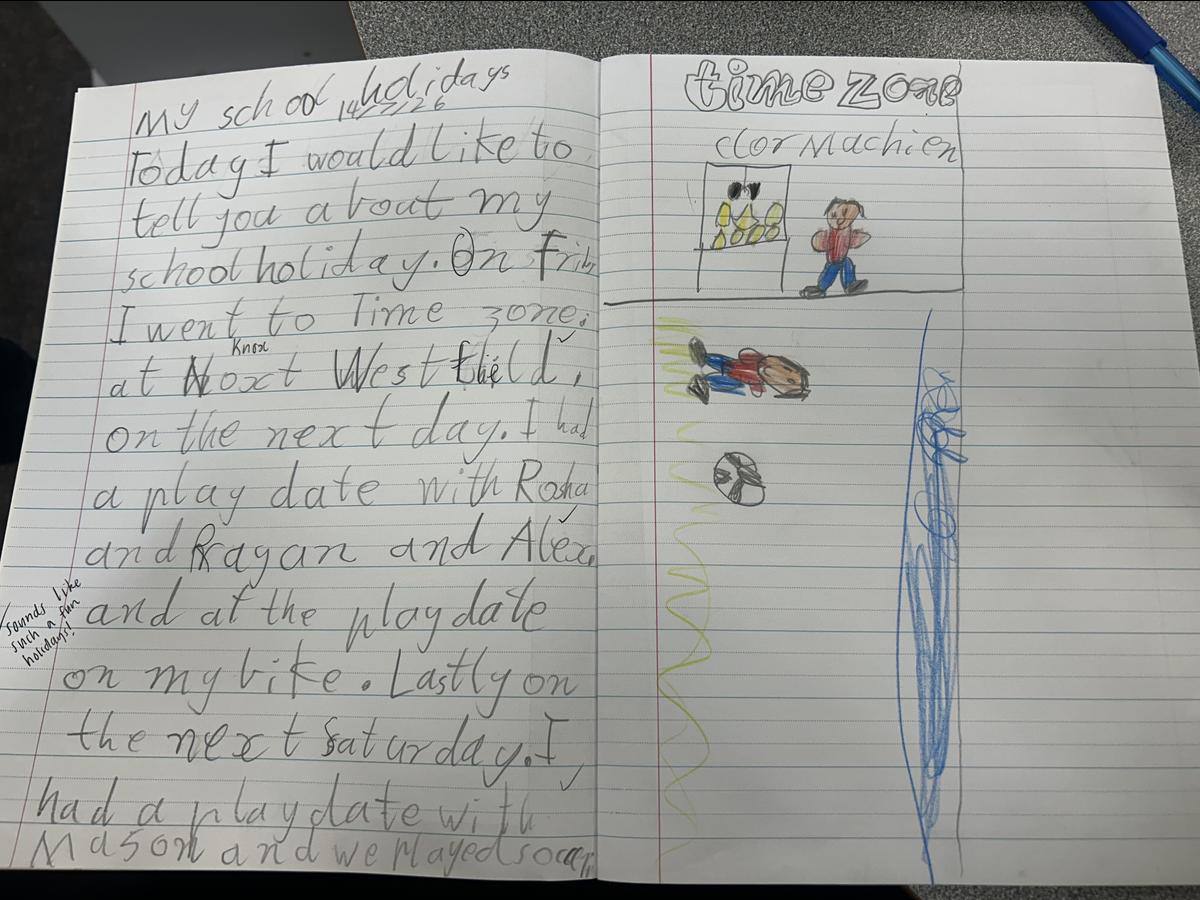 My school holidays
14/7/26
Today I would like to
tell you about my
school holiday. On Frid
I went to Time zone.
Knox
at Noxt Westfield.
on the next day. I had
a play date with Rosha
and Rayan and Alex.
and at the playdate
on my bike. Lastly on
the next Saturday. I
had a playdate with
Mason and we Played soccer
Sounds like
such a fun
holidays!
time zone
clor Machien